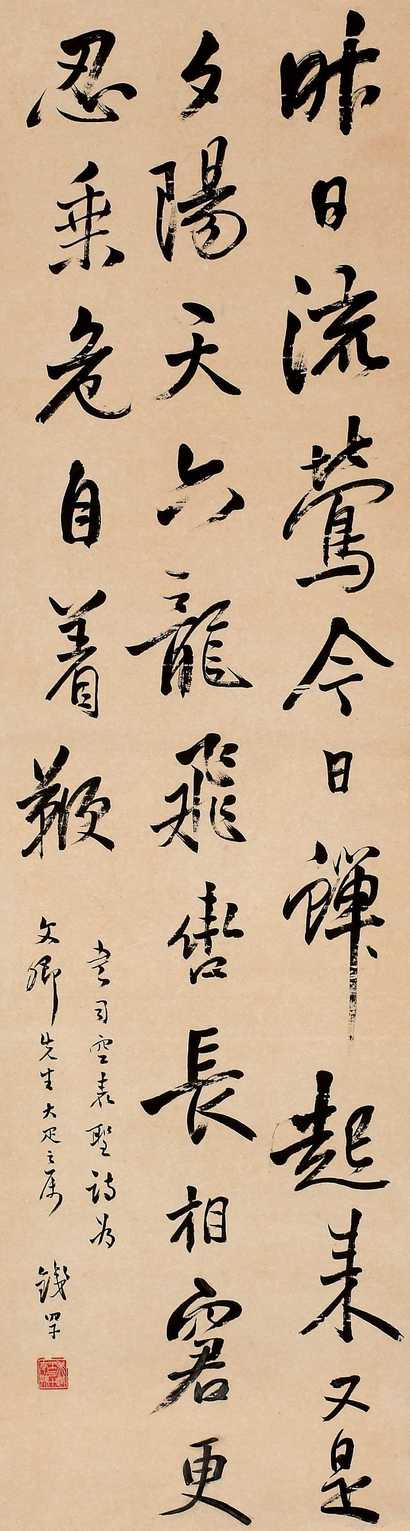 昨日流鶯今日蟬起来又是
夕陽天六龍飛轡長相窘更
忍乗危自着鞭
書司空表聖詩为
文卿先生大疋之属
錢罕